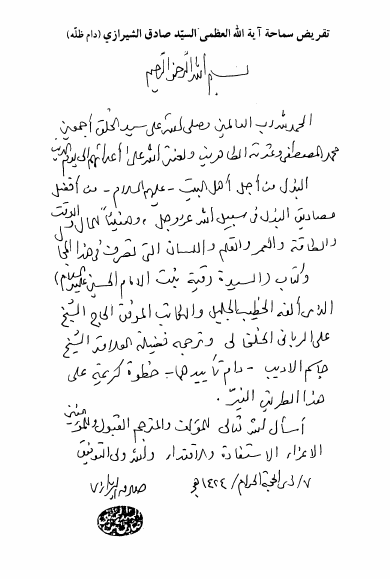 تقريض سماحة آية الله العظمى السيّد صادق الشيرازي (دام ظلّه)
بسم الله الرحمن الرحيم
الحمد لله رب العالمين وصلى الله على سيد الخلق أجمعين
محمد المصطفى وعترته الطاهرين ولعنة الله على أعدائهم إلى يوم الدين
البذل من أجل أهل البيت - عليهم السلام - من أفضل
مصاديق البذل في سبيل الله عز وجل، وهنيئاً للمال والوقت
والطاقة والعمر والقلم واللسان التي تصرف في هذا المجال
وكتاب (السيدة رقية بنت الامام الحسين عليهما السلام)
الذي ألفه الخطيب الجليل والكاتب الموفق الحاج الشيخ
على الرباني الخلخالي وترجمه فضيلة العلامة الشيخ
جاسم الاديب - دام تأييدهما - خطوة كريمة على
هذا الطريق النيّر.
أسأل الله تعالى للمؤلف والمترجم القبول وللمؤمنين
الاعزاء الاستفادة والاقتداء والله ولي التوفيق
٧/ ذي الحجة الحرام/ ١٤٢٤ هـ
صادق الشيرازي